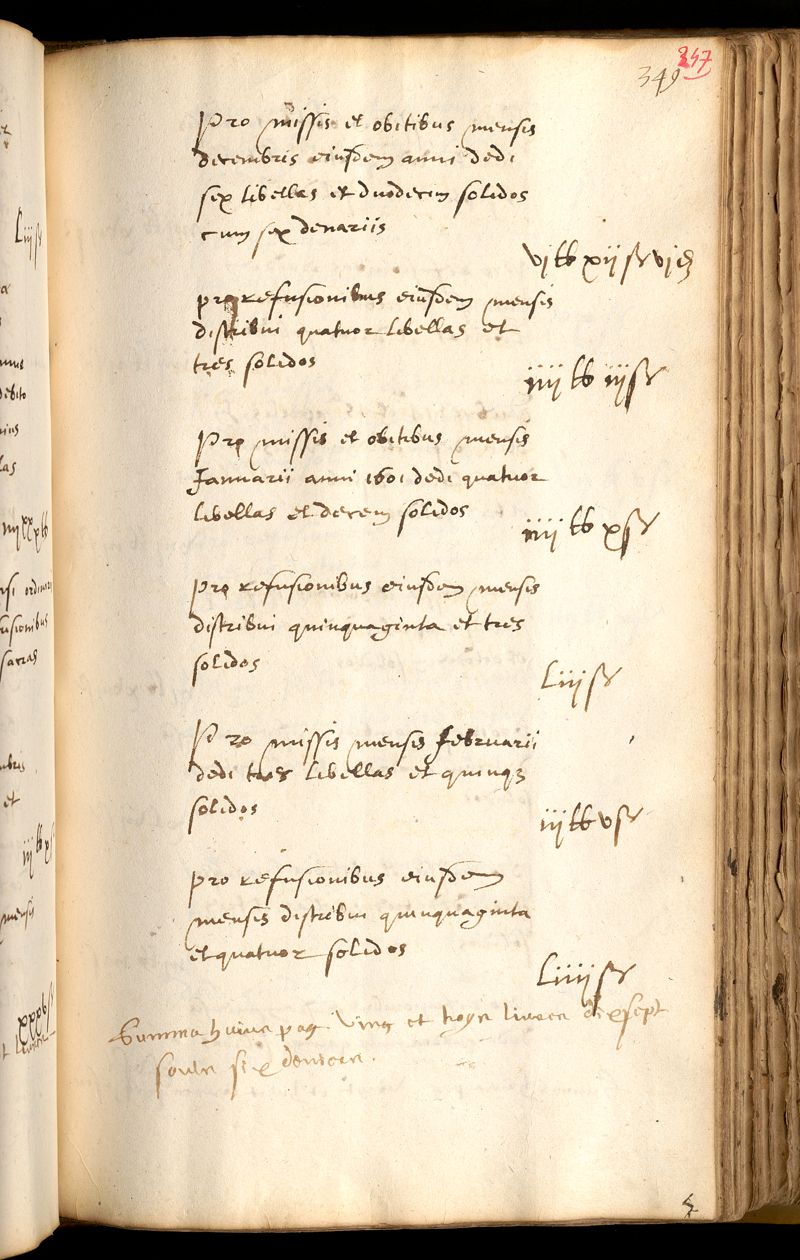 347
349
Pro missis et obitibus mensis
decembris eiusdem anni dedi
sex libellas et duodecim solidos
cum sex denariis
vj lb xij s vj d
pro refusionibus eiusdem mensis
distribui quatuor libellas et
tres solidos
iiij lb iij s
Pro missis et obitibus mensis
Januarii anni 1601 dedi quatuor
libellas et decem solidos
iiij lb x s
pro refusionibus eiusdem mensis
distribui quinquaginta et tres
solidos
Liij s
Pro missis mensis februarii
dedi tres libellas et quinq3
solidos
iij lb v s
pro refusionibus eiusdem
mensis distribui quinquaginta
et quatuor solidos
Liiij s
Summa huius pag. Ving et troys livres dixsept
soulz six deniers.